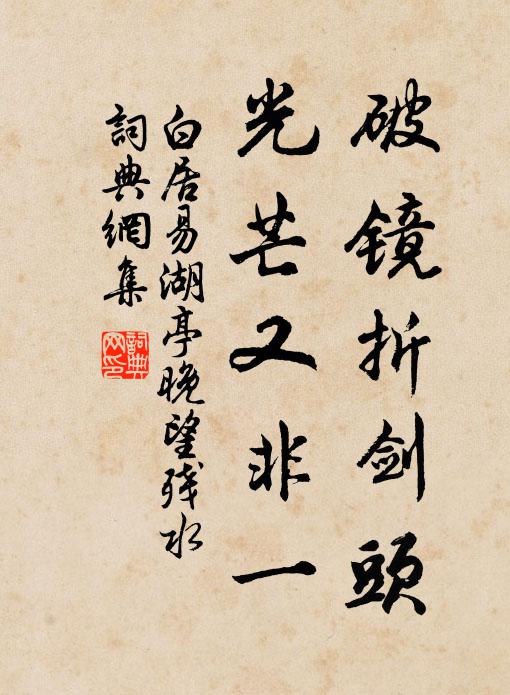 破镜折剑頭
光芒又非一
白居易湖亭晚望残水
詞典網集
詞典
网印